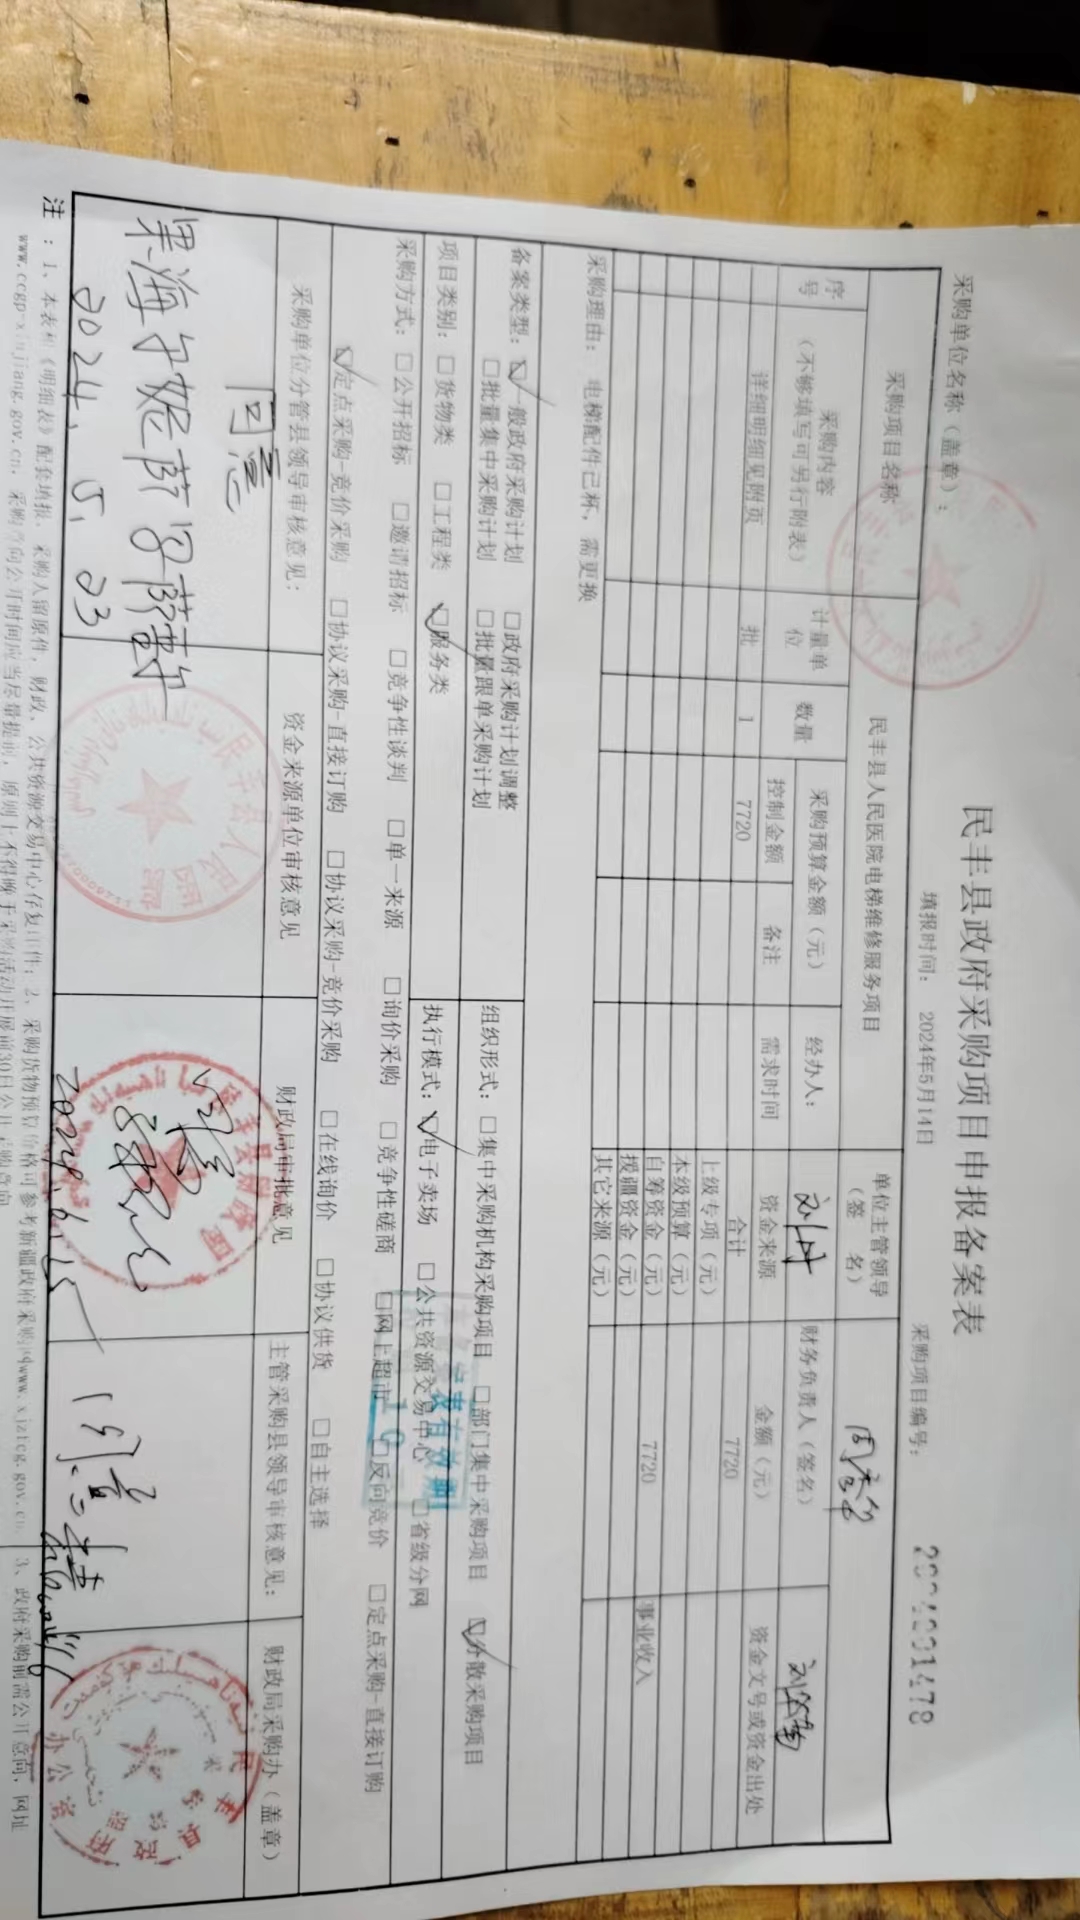 民丰县政府采购项目申报备案表
采购单位名称（盖章）： 填报时间： 2024年5月14日 采购项目编号：
采购项目名称 民丰县人民医院电梯维修服务项目 单位主管领导（签 名）
序号 采购内容（不够填写可另行附表） 计量单位 数量 采购预算金额（元） 经办人： 财务负责人（签名）
控制金额 备注 需求时间 资金来源 金额（元） 资金文号或资金出处
详细明细见附页 批 1 7720 合计 7720
上级专项（元）
本级预算（元）
自筹资金（元） 7720 事业收入
援疆资金（元）
其它来源（元）
采购理由： 电梯配件已杯，需更换
备案类型： ☑一般政府采购计划 □政府采购计划调整
□批量集中采购计划 □批量跟单采购计划
组织形式： □集中采购机构采购项目 □部门集中采购项目 ☑分散采购项目
项目类别： □货物类 □工程类 ☑服务类
执行模式： ☑电子卖场 □公共资源交易中心 □省级分网
采购方式： □公开招标 □邀请招标 □竞争性谈判 □单一来源 □询价采购 □竞争性磋商 □网上超市 □反向竞价 □定点采购-直接订购
☑定点采购-竞价采购 □协议采购-直接订购 □协议采购-竞价采购 □在线询价 □协议供货 □自主选择
采购单位分管县领导审核意见： 资金来源单位审核意见 财政局审批意见 主管采购县领导审核意见： 财政局采购办（盖章）
同意
2024.5.23
注：1、本表和《明细表》配套填报、采购人留原件，财政、公共资源交易中心存复印件；2、采购货物预算价格可参考新疆政府采购网www.xjztcg.gov.cn. 3、政府采购前需公开意向，网址
www.ccgp-xinjiang.gov.cn. 采购意向公开时间应当尽量提前，原则上不得晚于采购活动开展前30日公开采购意向